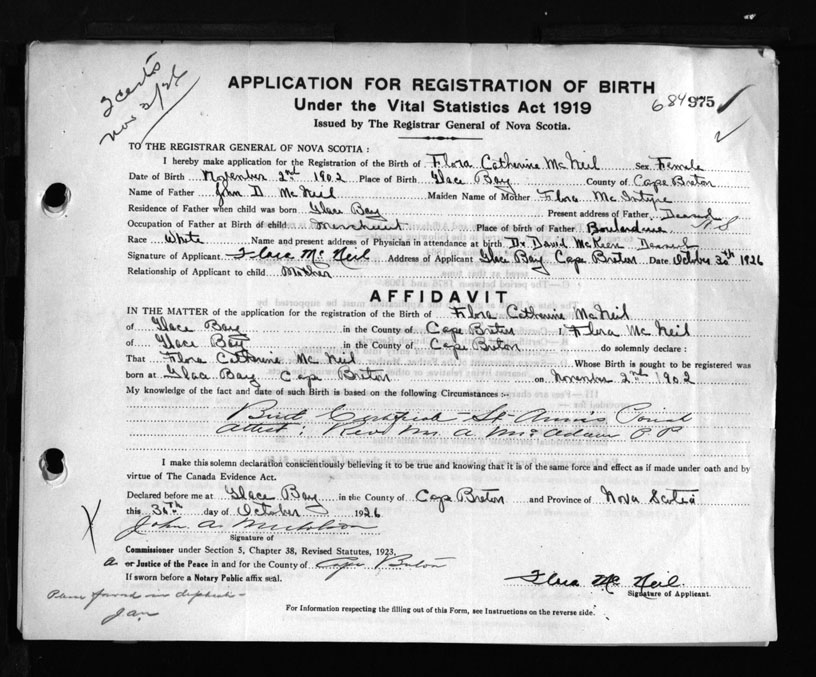 2 certs
Nov 2/26
APPLICATION FOR REGISTRATION OF BIRTH
Under the Vital Statistics Act 1919
684975
Issued by The Registrar General of Nova Scotia.
TO THE REGISTRAR GENERAL OF NOVA SCOTIA :
I hereby make application for the Registration of the Birth of Flora Catherine Mc Neil Sex Female
Date of Birth November 2nd 1902 Place of Birth Glace Bay County of Cape Breton
Name of Father John D Mc Neil Maiden Name of Mother Flora Mc Intyre
Residence of Father when child was born Glace Bay Present address of Father Deceased
Occupation of Father at Birth of child Merchant Place of birth of Father Boularderie N S
Race White Name and present address of Physician in attendance at birth Dr David McKeen Deceased
Signature of Applicant Flora Mc Neil Address of Applicant Glace Bay Cape Breton Date October 30th 1926
Relationship of Applicant to child Mother
AFFIDAVIT
IN THE MATTER of the application for the registration of the Birth of Flora Catherine Mc Neil
of Glace Bay in the County of Cape Breton I, Flora Mc Neil
of Glace Bay in the County of Cape Breton do solemnly declare :
That Flora Catherine Mc Neil Whose Birth is sought to be registered was
born at Glace Bay Cape Breton on November 2nd 1902
My knowledge of the fact and date of such Birth is based on the following Circumstances :-
Birth Certificate - St Ann's Parish
Attest : Rev M. A. McAdam P.P
I make this solemn declaration conscientiously believing it to be true and knowing that it is of the same force and effect as if made under oath and by
virtue of The Canada Evidence Act.
Declared before me at Glace Bay in the County of Cape Breton and Province of Nova Scotia
this 30th day of October 1926
John A. Nicholson
Signature of
Commissioner under Section 5, Chapter 38, Revised Statutes, 1923,
a or Justice of the Peace in and for the County of Cape Breton
If sworn before a Notary Public affix seal.
Flora Mc Neil
Signature of Applicant.
For Information respecting the filling out of this Form, see Instructions on the reverse side.